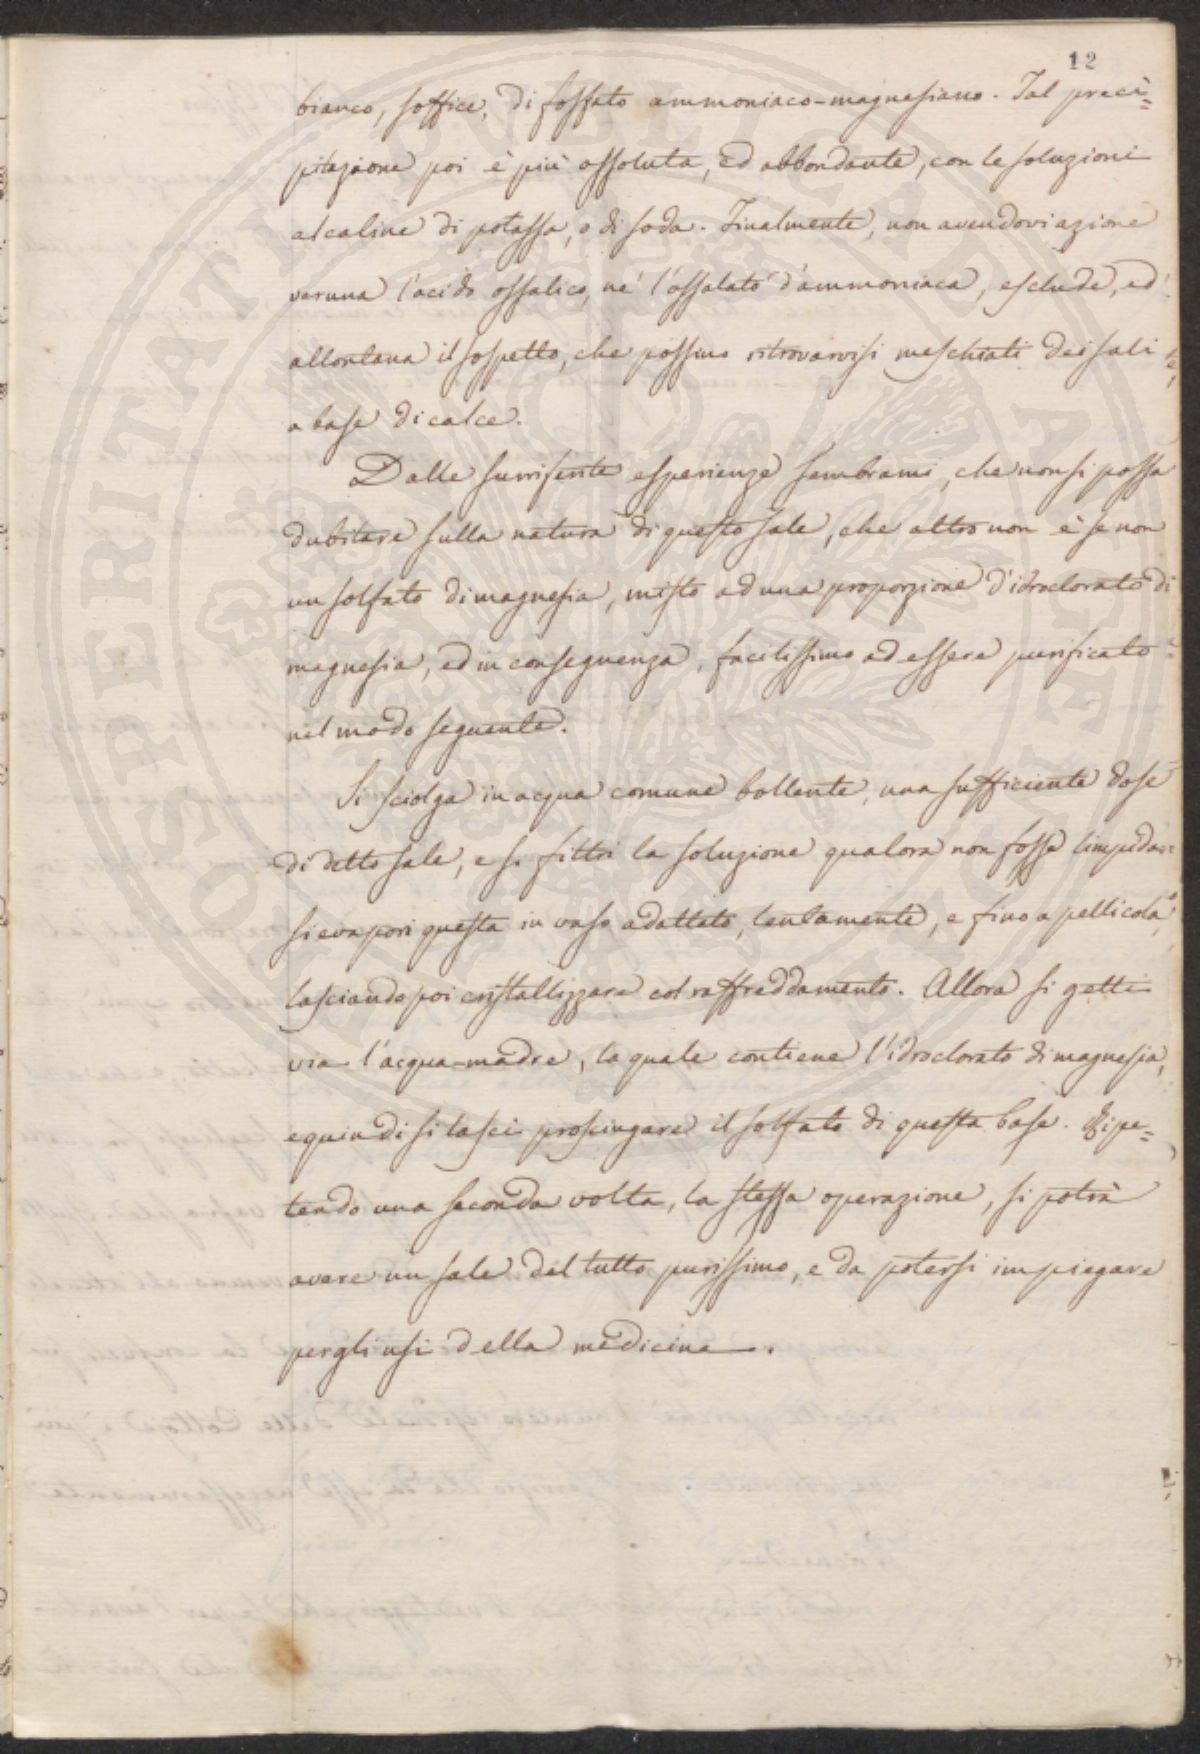 12
bianco, soffice, di fosfato ammoniaco-magnesiano. Tal preci=
pitazione poi è più assoluta, ed abbondante, con le soluzioni
alcaline di potassa, o di soda. Finalmente, non avendovi azione
veruna l'acido ossalico, nè l'ossalato d'ammoniaca, esclude, ed
allontana il sospetto, che possino ritrovarvisi meschiati dei sali
a base di calce.
Dalle surriferite esperienze sembrami, che non si possa
dubitare sulla natura di questo sale, che altro non è se non
un solfato di magnesia, misto ad una proporzione d'idroclorato di
magnesia, ed in conseguenza, facilissimo ad essere purificato
nel modo seguente.
Si sciolga in acqua comune bollente, una sufficiente dose
di detto sale, e si filtri la soluzione qualora non fosse limpida:
si evapori questa in vaso adattato, lentamente, e fino a pellicola,
lasciando poi cristallizzare col raffreddamento. Allora si getti
via l'acqua-madre, la quale contiene l'idroclorato di magnesia,
e quindi si lasci prosciugare il solfato di questa base. Ripe=
tendo una seconda volta, la stessa operazione, si potrà
avere un sale del tutto purissimo, e da potersi impiegare
per gli usi della medicina.